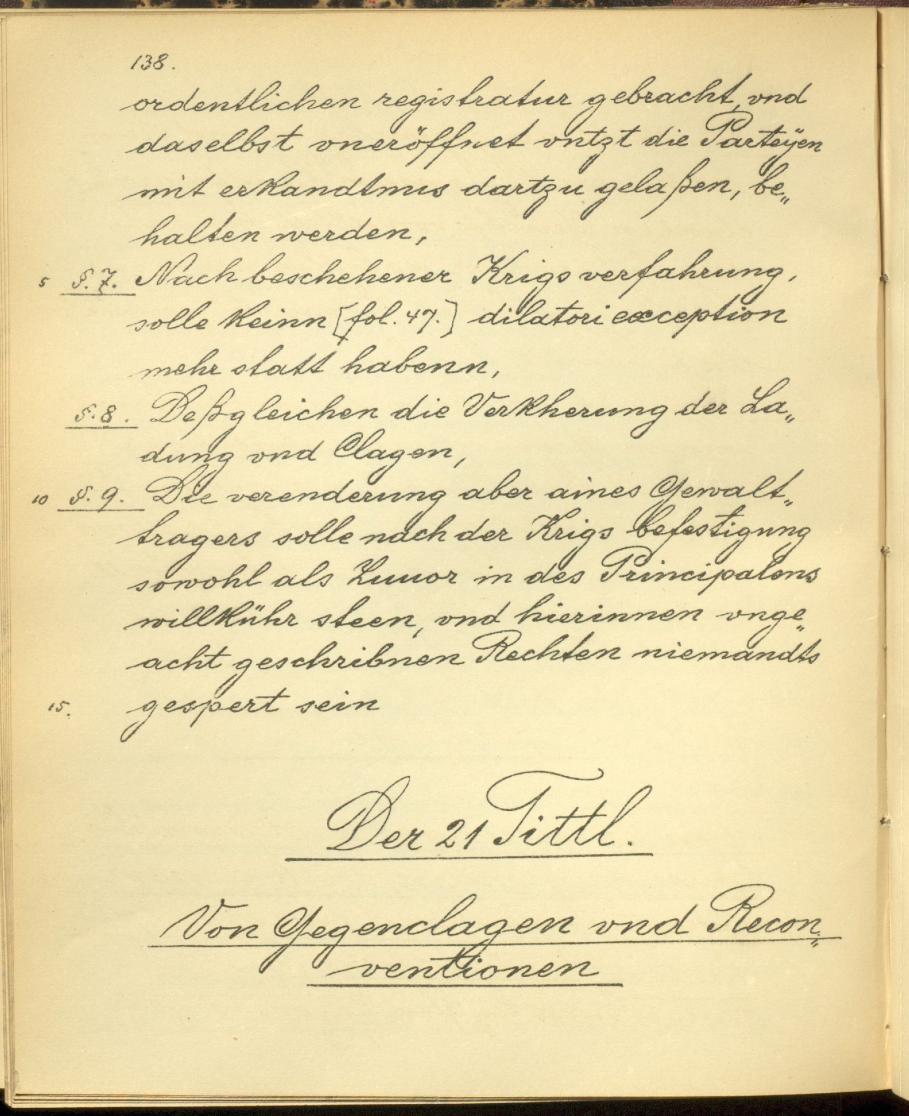 138.
ordentlichen registratur gebracht, vnd
daselbst vneröffnet vntzt die Parteÿen
mit erkandtnus dartzu gelaßen, be„
halten werden,
5 §. 7. Nach beschehener Krigs verfahrung,
solle keinn [fol. 47.] dilatori exception
mehr statt habenn,
§. 8. Deßgleichen die Verkherung der La„
dung vnd Clagen,
10 §. 9. Die verenderung aber aines Gewalt„
tragers solle nach der Krigs befestigung
sowohl als Zuuor in des Principalens
willkühr steen, vnd hierinnen vnge„
acht geschribnen Rechten niemandts
15. gespert sein
Der 21 Tittl.
Von Gegenclagen vnd Recon„
ventionen